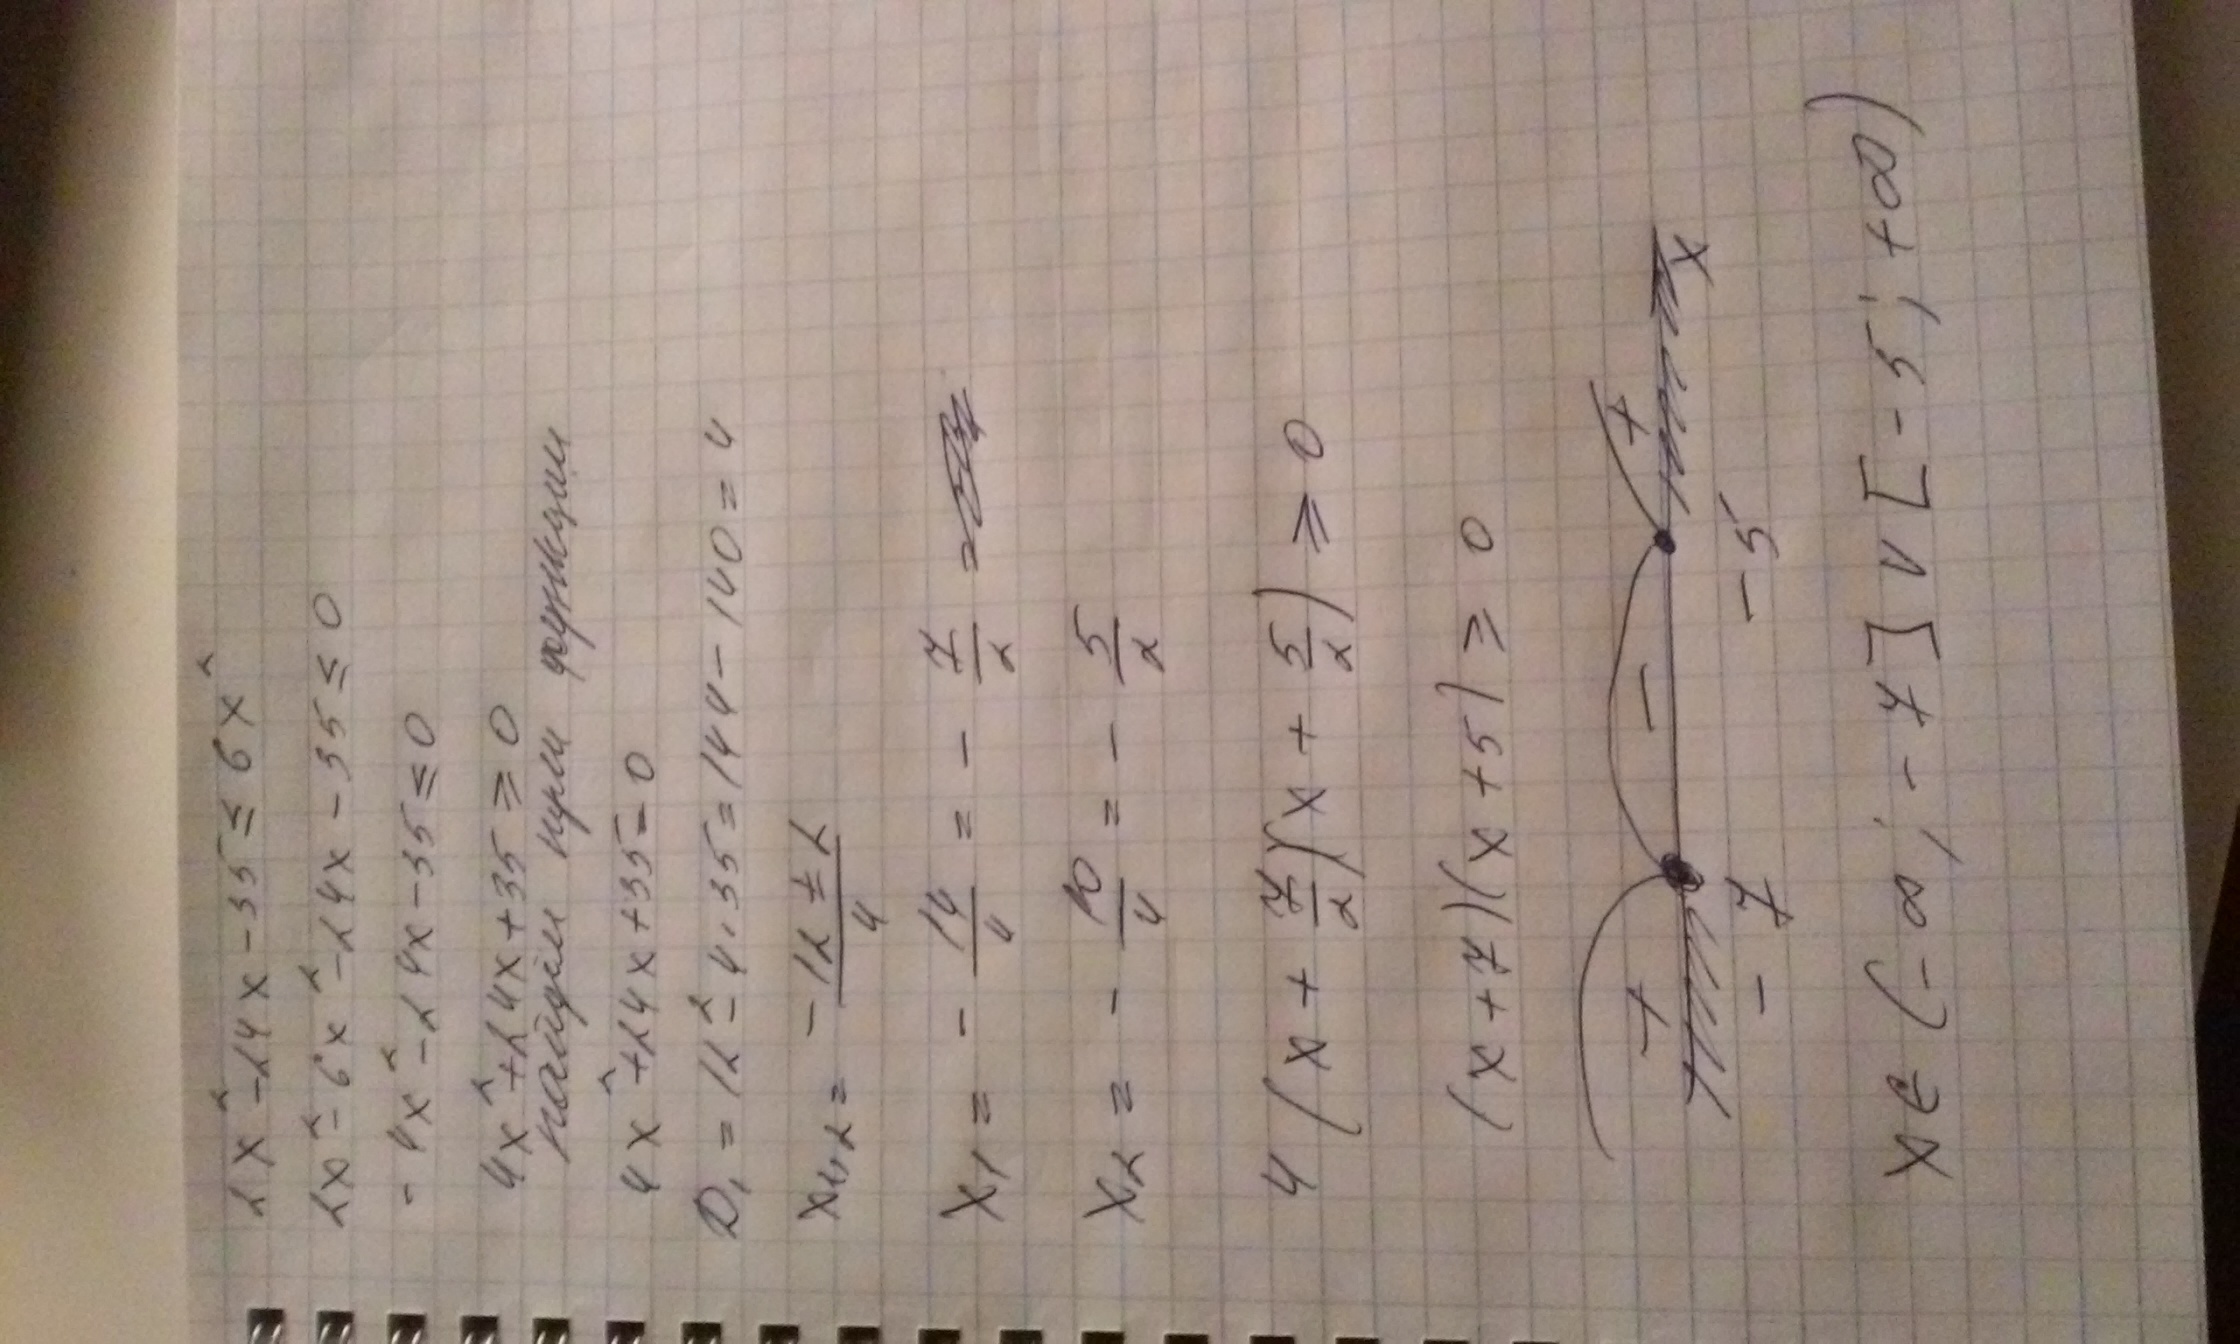 2x² - 24x - 35 ≤ 6x²
2x² - 6x² - 24x - 35 ≤ 0
-4x² - 24x - 35 ≤ 0
4x² + 24x + 35 ≥ 0
найдём нули функции
4x² + 24x + 35 = 0
D₁ = 12² - 4·35 = 144 - 140 = 4
x₁,₂ = (-12 ± 2)/4
x₁ = -14/4 = -7/2 =
x₂ = -10/4 = -5/2
4(x + 7/2)(x + 5/2) ≥ 0
(x + 7)(x + 5) ≥ 0
+ - +
-7 -5 x
x ∈ (-∞; -7] ∨ [-5; +∞)